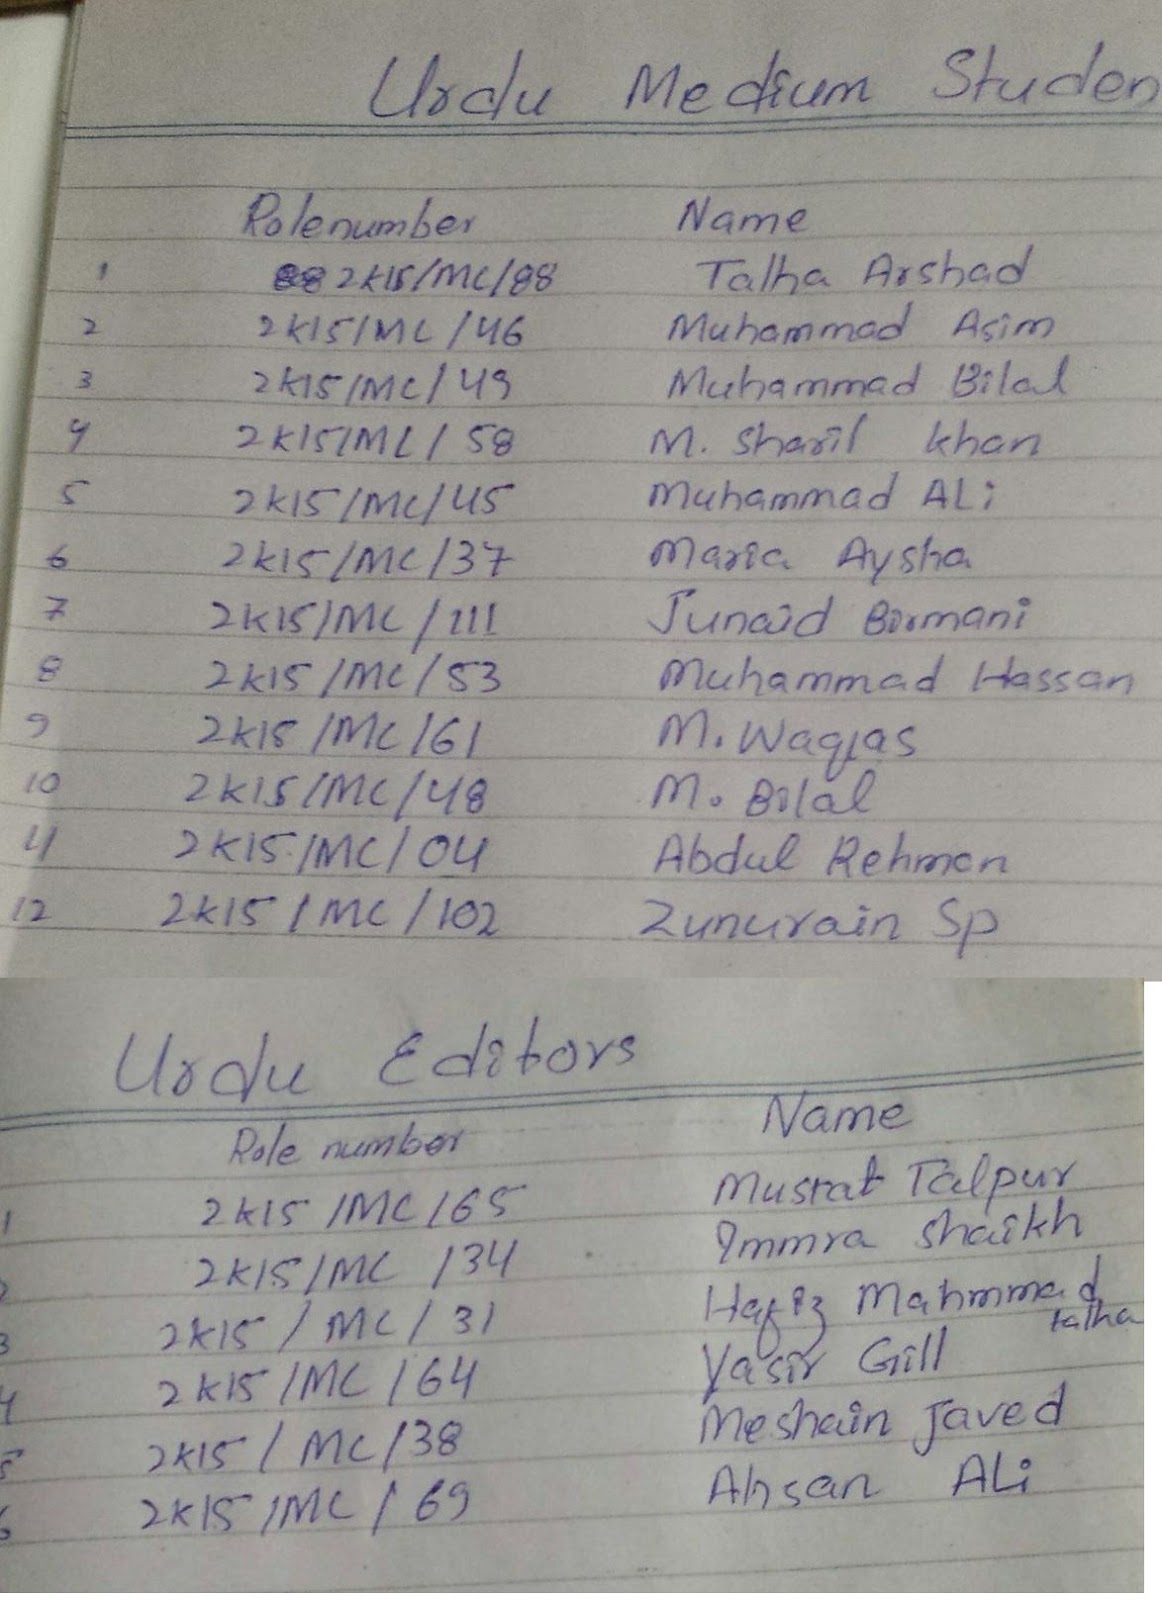 Urdu Medium Studen
Rolenumber Name
1 2K15/MC/88 Talha Arshad
2 2K15/MC/46 Muhammad Asim
3 2K15/MC/49 Muhammad Bilal
4 2K15/MC/58 M. Sharil Khan
5 2K15/MC/45 Muhammad ALi
6 2K15/MC/37 Maria Aysha
7 2K15/MC/111 Junaid Birmani
8 2K15/MC/53 Muhammad Hassan
9 2K15/MC/61 M. Waqas
10 2K15/MC/48 M. Bilal
11 2K15/MC/04 Abdul Rehman
12 2K15/MC/102 Zunurain Sp
Urdu Editors
Role number Name
1 2K15/MC/65 Musrat Talpur
2 2K15/MC/34 Immra Shaikh
3 2K15/MC/31 Hafiz Mahmmad
talha
4 2K15/MC/64 Yasir Gill
5 2K15/MC/38 Meshain Javed
6 2K15/MC/69 Ahsan ALi